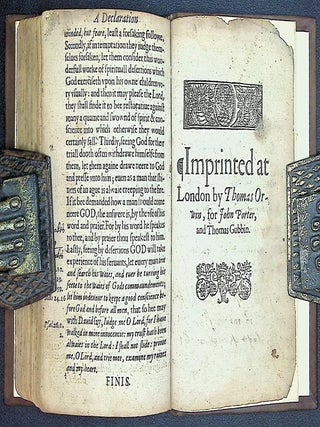 A Declaration
winded, but feare, least a forsaking followe.
Secondly, if in temptation they iudge them-
selues forsaken; let them consider this won-
derfull worke of spirituall desertions which
God exerciseth vpon his owne children ve-
ry vsually: and then it may please the Lord,
they shall finde it to bee restoratiue against
many a qualme and swownd of spirit & con-
science into which otherwise they would
certainly fall. Thirdly, seeing God for their
triall dooth often withdrawe himselfe from
them; let them againe drawe neere to God
and presse vnto him; euen as a man that shi-
uers of an ague is alwaie creeping to the fire.
If it bee demaunded how a man should come
neere GOD, the answere is, by the vse of his
word and prayer. For by his word he speakes
to thee, and by praier thou speakest to him.
Lastly, seeing by desertions GOD will take
experience of his seruants, let euery man trie
and search his waies, and euer be turning his
feete to the waies of Gods commaundements;
let him endeuour to keepe a good conscience be-
fore God and before all men, that so hee may
with Dauid say, Iudge me O Lord, for I haue
walked in mine innocencie: my trust hath been
alwaies in the Lord: I shall not slide: proue
me, O Lord, and trie mee, examine my raines
and my heart.
FINIS.
Imprinted at
London by Thomas Or-
win, for John Porter,
and Thomas Gubbin.